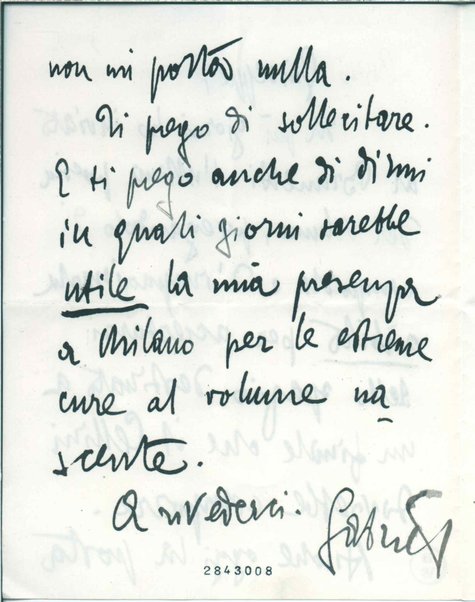 non mi portò nulla.
Ti prego di sollecitare.
E ti prego anche di dirmi
in quali giorni sarebbe
utile la mia presenza
a Milano per le estreme
cure al volume na
scente.
A rivederci. Gabriele
2843008